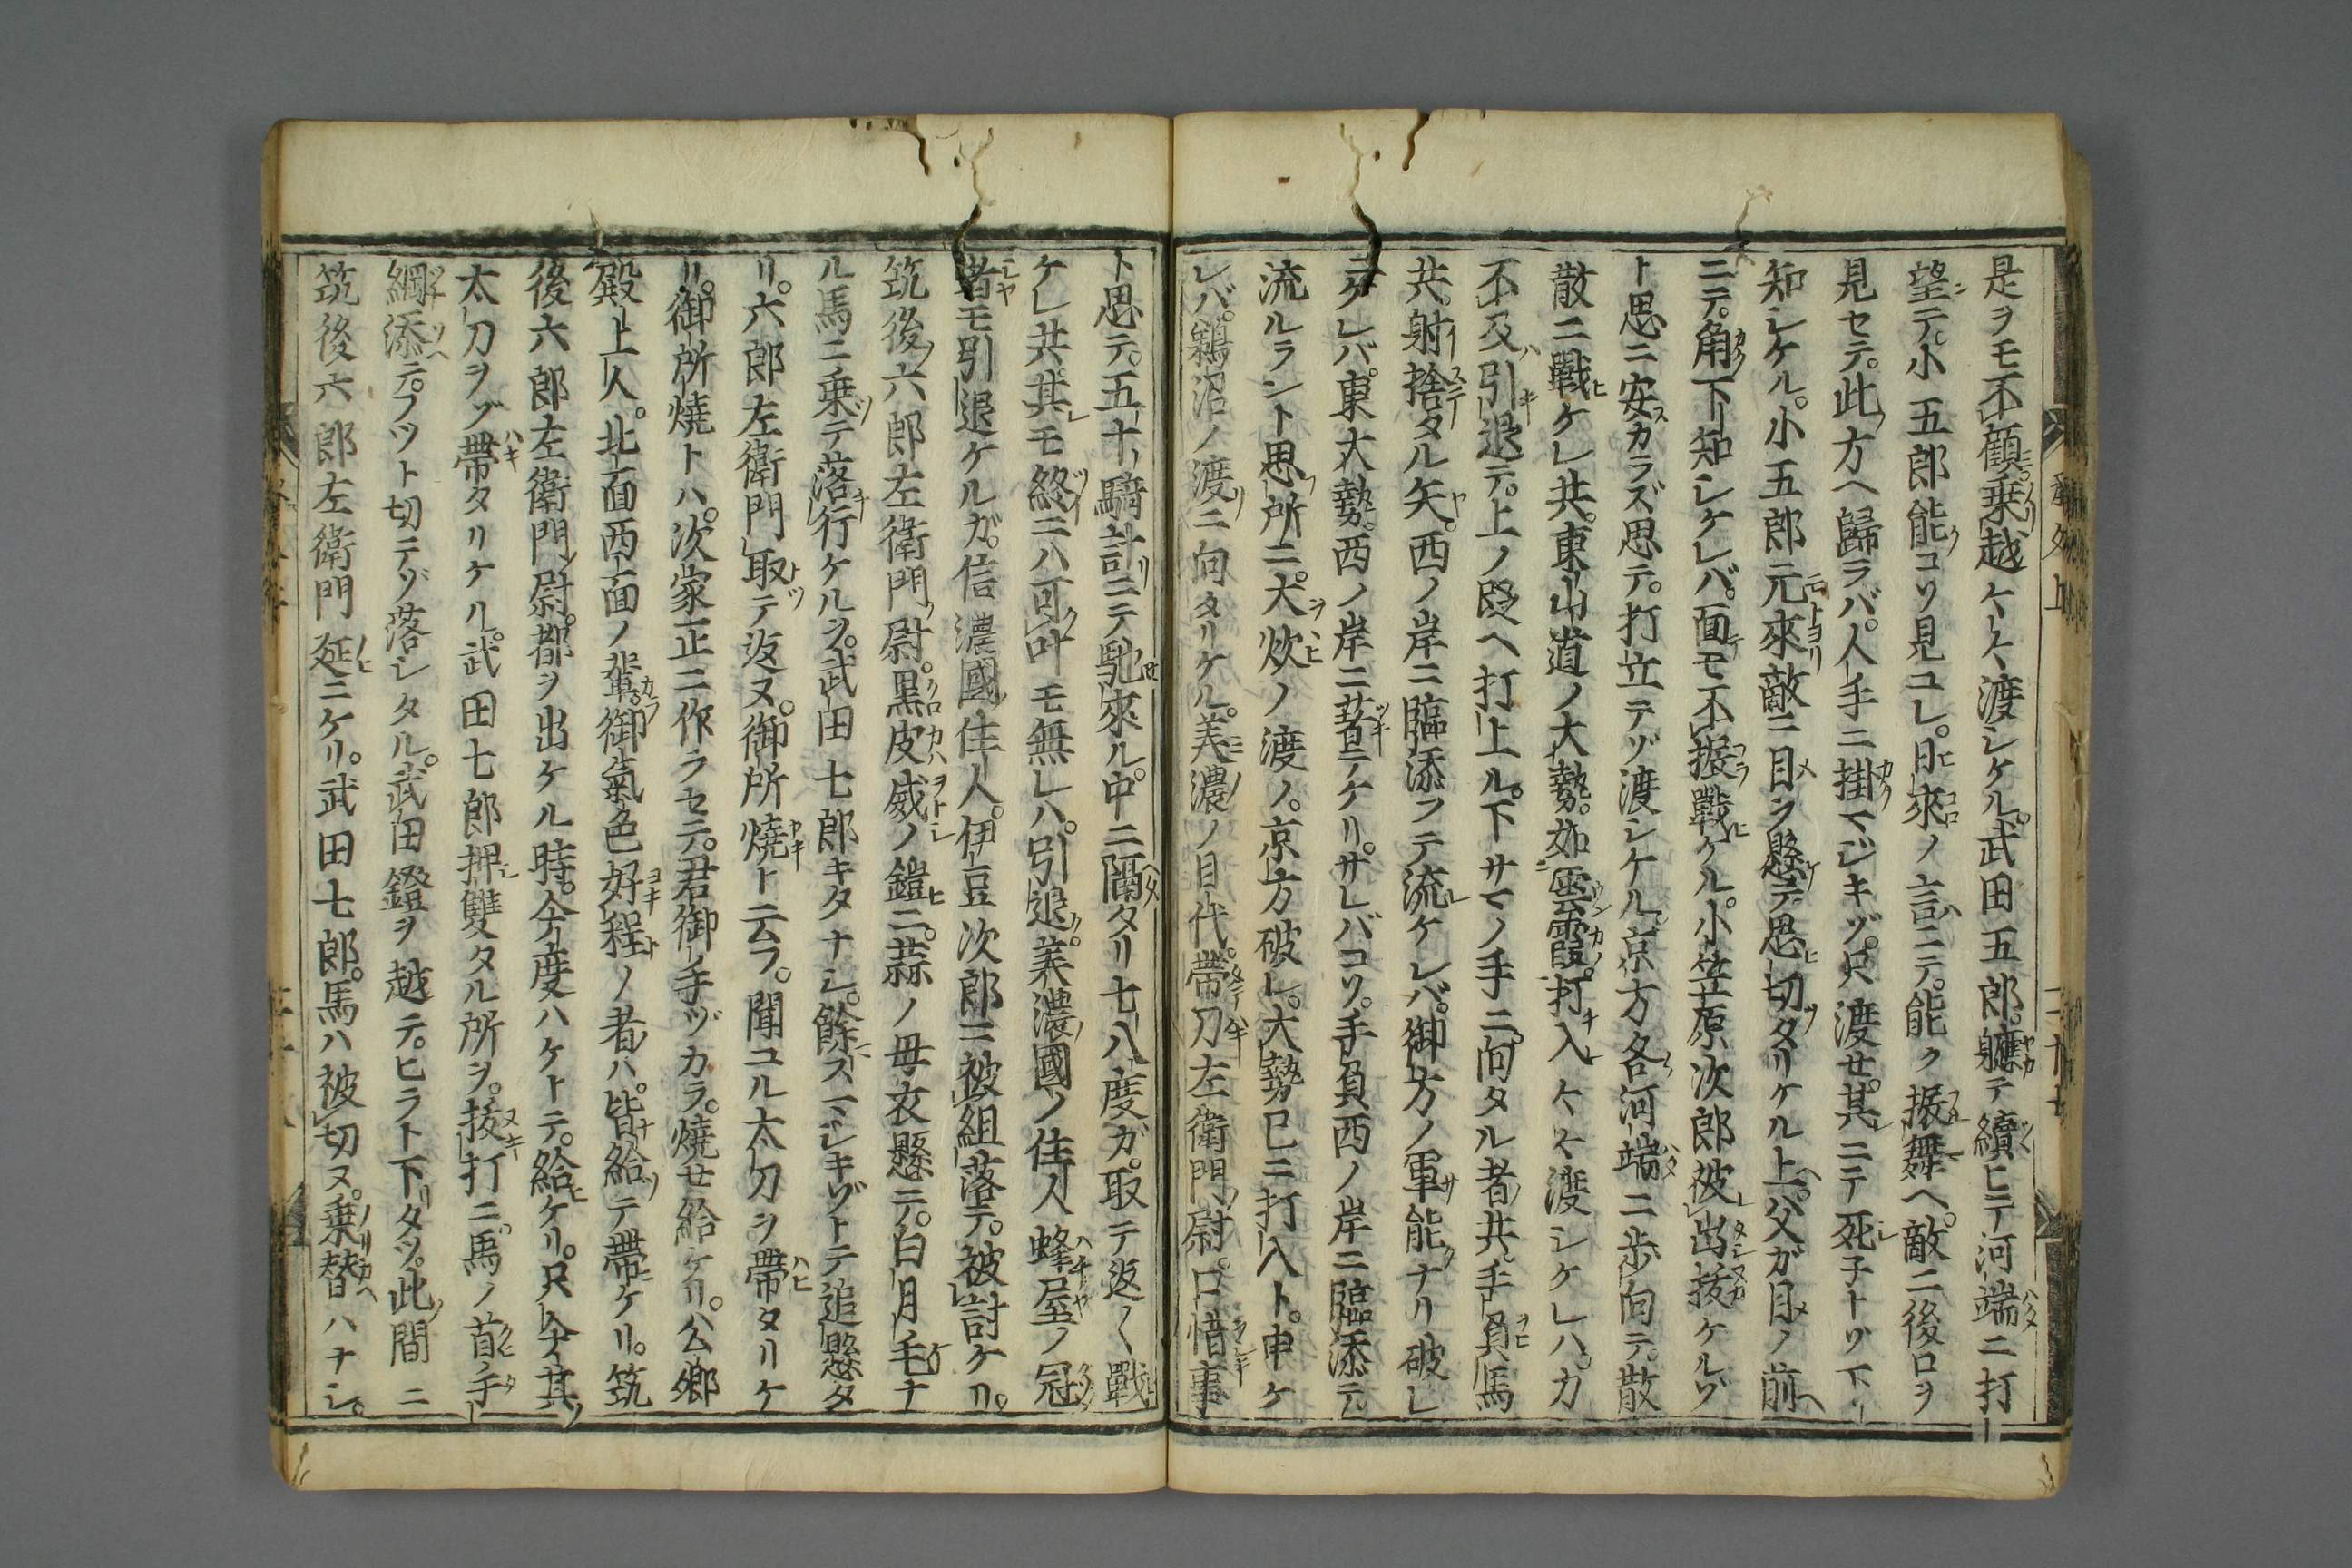 是ヲモ不顧乗越ケヽ渡シケル。武田五郎。軈テ續ヒテ河端ニ打
望テ。小五郎能コソ見ユレ。日來ノ言ニテ。能ク振舞ヘ。敵ニ後ロヲ
見セテ。此方ヘ歸ラバ。人手ニ掛マジキゾ。只渡セ。其ニテ死子トゾ下
知シケル。小五郎元來敵ニ目ヲ懸テ思切タリケル上。父ガ目ノ前
ニテ。角下知シケレバ。面モ不振戰ケル。小笠原次郎被出抜ケルゾ
ト思ニ安カラズ思テ。打立テゾ渡シケル。京方各河端ニ歩向テ。散
散ニ戰ケレ共。東山道ノ大勢。如雲霞。打入ケヽ渡シケレハ。力
不及引退テ。上ノ段ヘ打上ル。下サマノ手ニ向タル者共。手負馬
共。射捨タル矢。西ノ岸ニ臨添フテ流ケレバ。御方ノ軍能ナリ破レ
ニケレバ。東大勢。西ノ岸ニ著ニケリ。サレバコソ。手負西ノ岸ニ臨添テ
流ルラント思所ニ。大炊ノ渡ノ。京方破レ。大勢已ニ打入ト。申ケ
レバ。鵜沼ノ渡ニ向タリケル。美濃ノ目代。帶刀左衛門尉。口惜事
ト思テ。五十騎計ニテ馳來ル。中ニ隔タリ七八度ガ。取テ返〱戰
ケレ共。其モ終ニハ可叶モ無レハ。引退。美濃國ノ住人蜂屋ノ冠
者モ引退ケルガ。信濃國住人。伊豆次郎ニ被組落テ。被討ケリ。
筑後六郎左衛門尉。黒皮威ノ鎧ニ。蒜ノ母衣懸ニテ。白月毛ナ
ル馬ニ乗テ落行ケルヲ。武田七郎キタナシ。餘スマシキゾトテ追懸タ
リ。六郎左衛門取テ返ヌ。御所焼ト云フ。聞ユル太刀ヲ帶タリケ
リ。御所焼トハ。次家正ニ作ラセテ。君御手ヅカラ。焼セ給ケリ。公卿
殿上人。北面西面ノ輩。御氣色好程ノ者ハ。皆給テ帶ケリ。筑
後六郎左衛門尉。都ヲ出ケル時。今度ハケトテ。給ケリ。只今其
太刀ヲゾ帶タリケル。武田七郎押雙タル所ヲ。抜打ニ馬ノ首手
綱添テ。フツト切テゾ落シタル。武田鐙ヲ越テ。ヒラト下タツ。此間ニ
筑後六郎左衛門延ニケリ。武田七郎。馬ハ被切ヌ。乗替ハナシ。